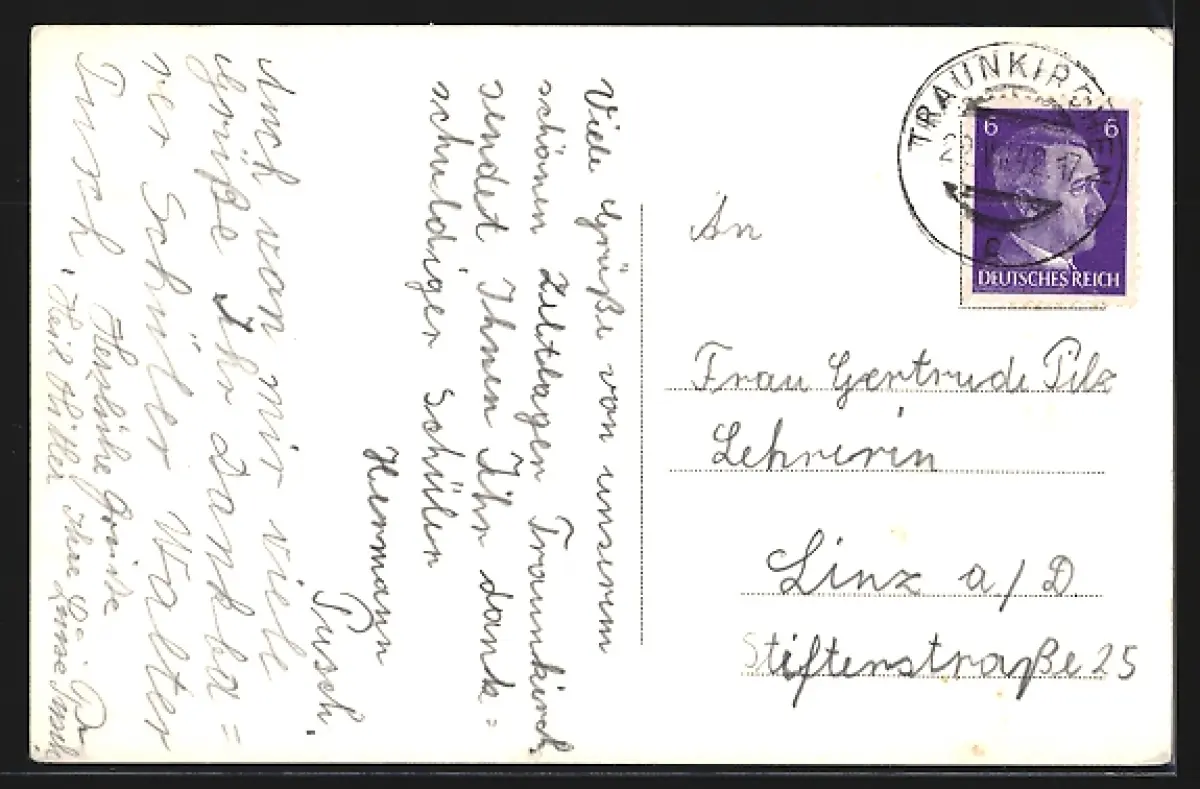 Viele Grüße von unserem
schönen Zeltlager Traunkirch.
sendet Ihnen Ihr dank=
schuldiger Schüler
Hermann
Pusch.
Auch von mir viele
Grüße Ihr dankba=
rer Schüler Walter
Pusch,
Herzliche Grüße
Heil Hitler Ihre Luise Pusch
TRAUNKIRCHEN
6 6
DEUTSCHES REICH
An
Frau Gertrude Pilz
Lehrerin
Linz a/D.
Stifterstraße 25